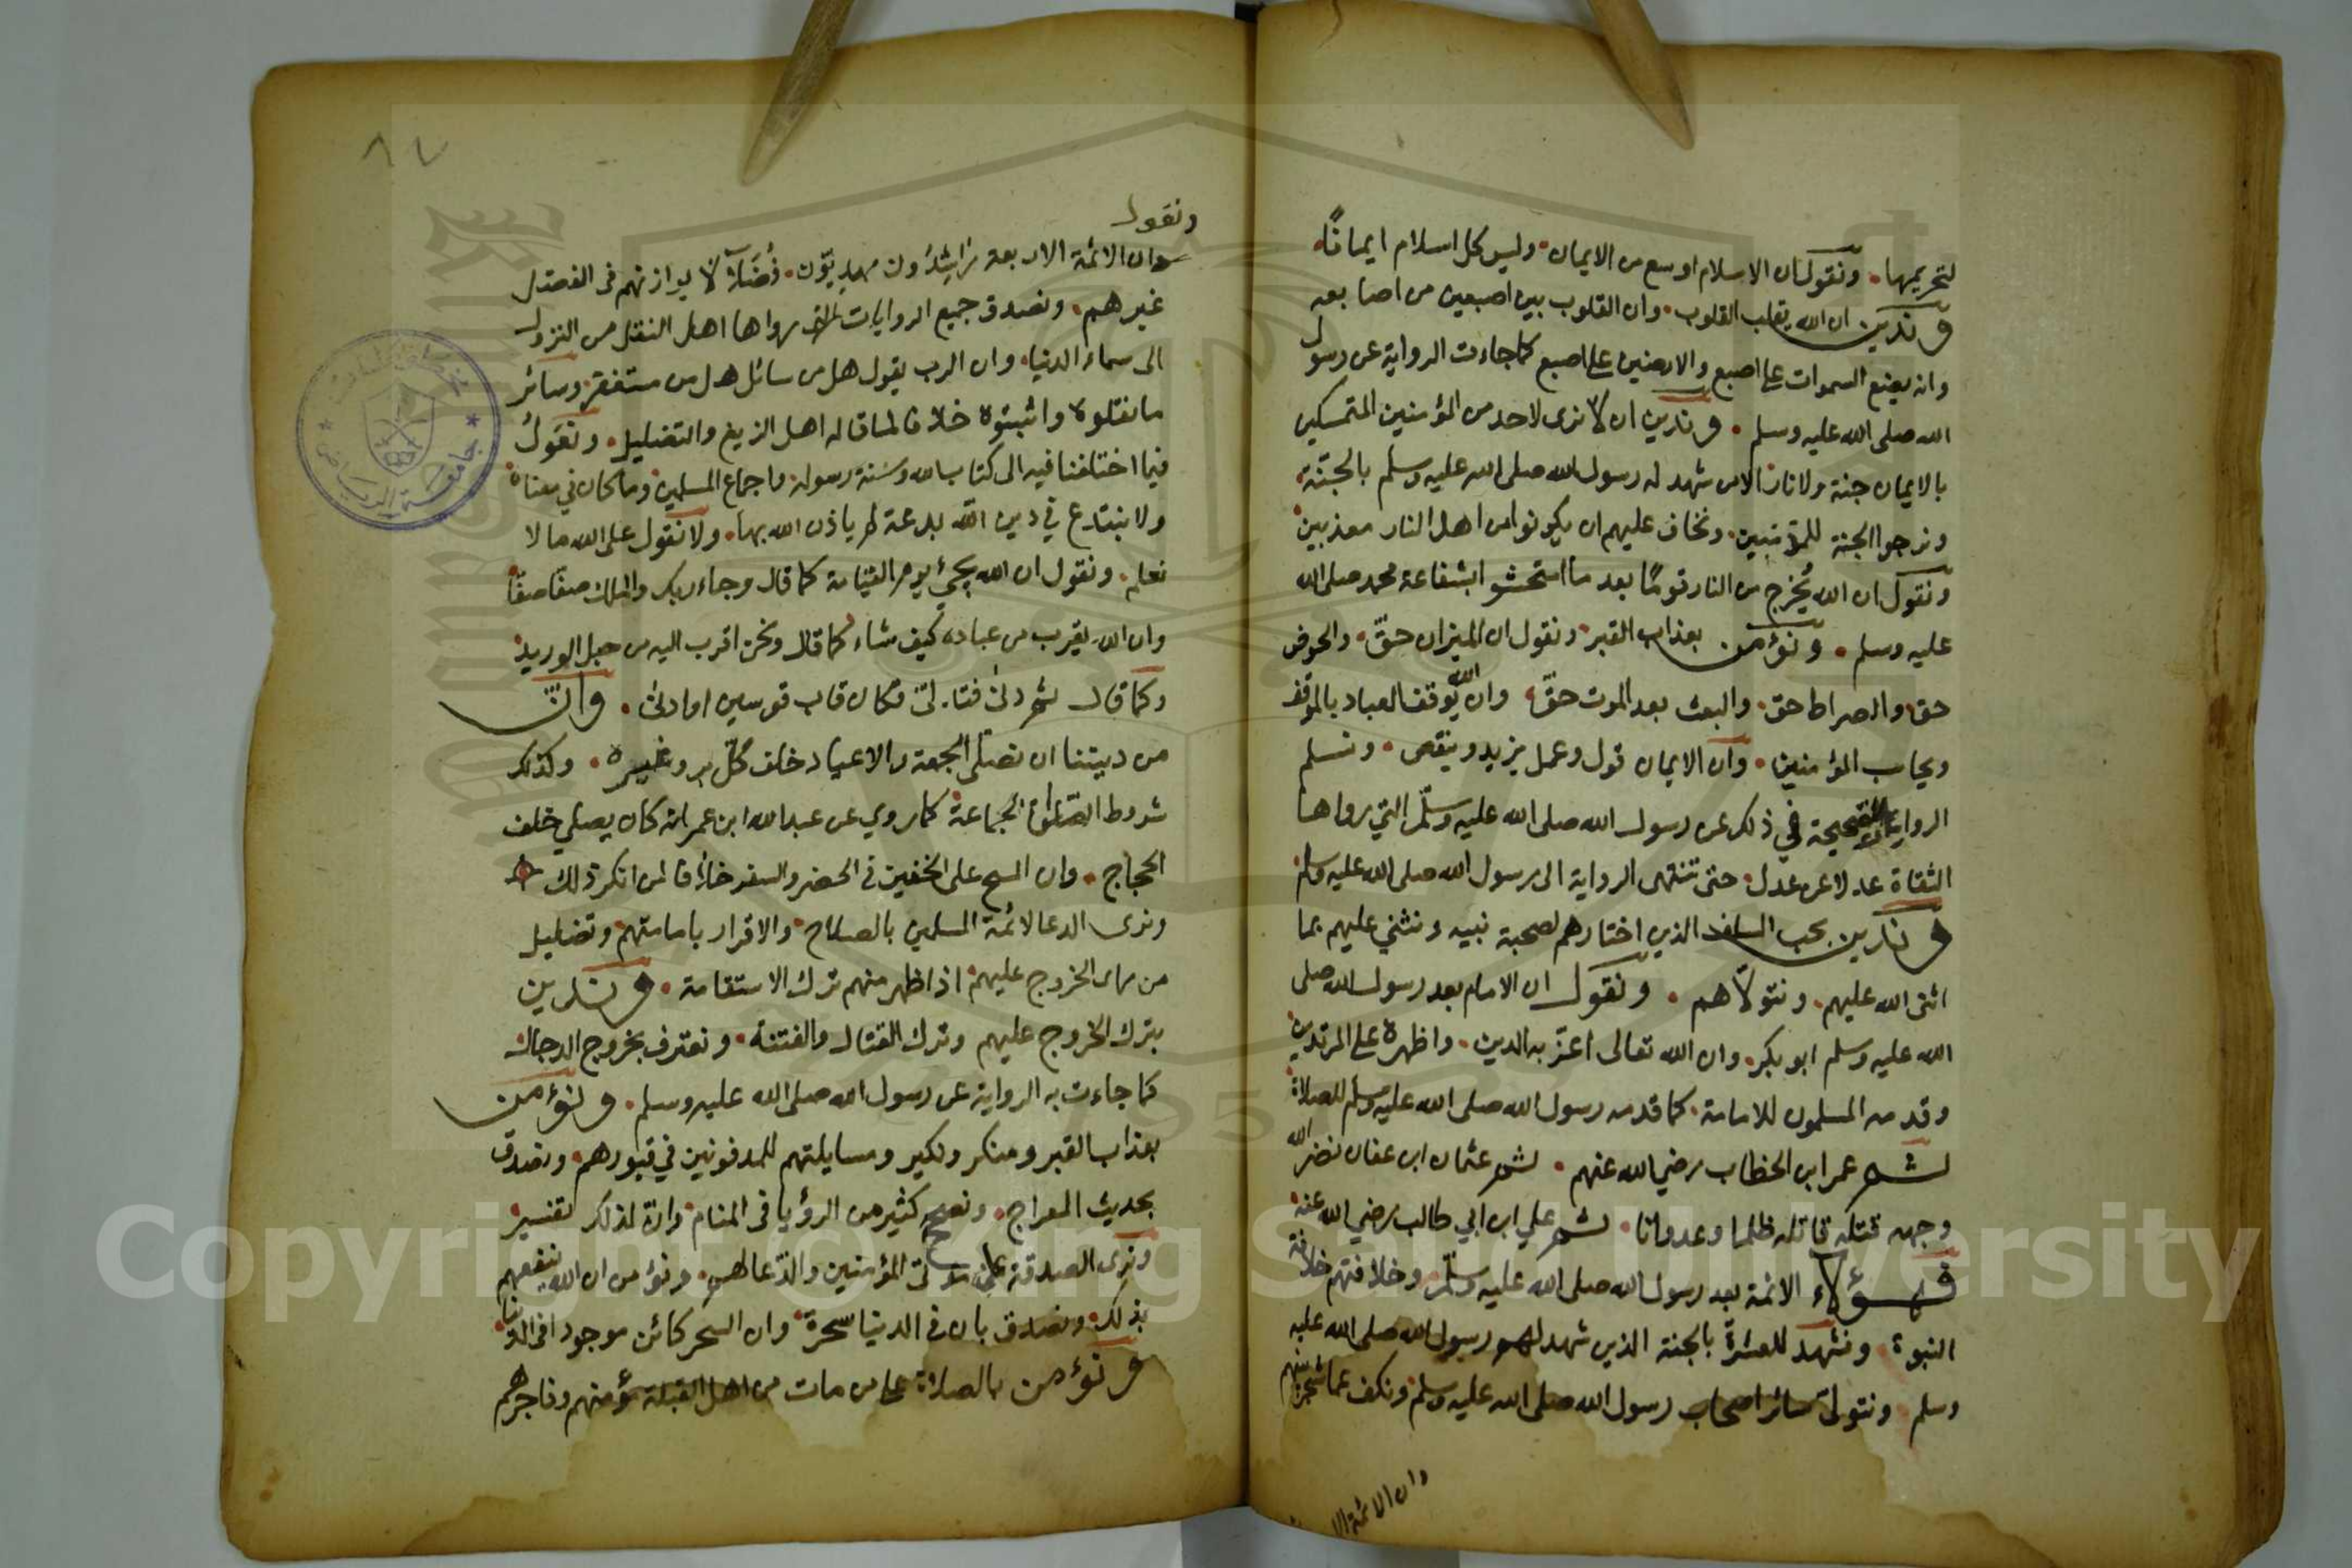 لتحريمها. ونقول ان الاسلام اوسع من الايمان. وليس كل اسلام ايمانًا.
وندين ان الله يقلب القلوب. وان القلوب بين اصبعين من اصابعه
وانه يضع السموات على اصبع والارضين على اصبع كما جاءت الرواية عن رسول
الله صلى الله عليه وسلم. وندين ان لا نرى لاحد من المؤمنين المتمسكين
بالايمان جنة ولا نارا الا من شهد له رسول الله صلى الله عليه وسلم بالجنة
ونرجوا الجنة للمؤمنين. ونخاف عليهم ان يكونوا من اهل النار معذبين
ونقول ان الله يُخرج من النار قومًا بعد ما استحشوا بشفاعة محمد صلى الله
عليه وسلم. ونؤمن بعذاب القبر ونقول ان الميزان حقّ. والحوض
حق والصراط حق. والبعث بعد الموت حقّ وان الله يوقف العباد بالموقف
ويحاسب المؤمنين. وان الايمان قول وعمل يزيد وينقص. ونسلم
الروايات الصحيحة في ذلك عن رسول الله صلى الله عليه وسلّم التي رواها
الثقاة عدلا عن عدل. حتى تنتهى الرواية الى رسول الله صلى الله عليه وسلم
وندين بحب السلف الذين اختارهم لصحبة نبيه ونثني عليهم بما
اثنى الله عليهم. ونتولّاهم. ونقول ان الامام بعد رسول الله صلى
الله عليه وسلم ابو بكر. وان الله تعالى اعزّ به الدين. واظهره على المرتدين
وقدمه المسلمون للامامة. كما قدمه رسول الله صلى الله عليه وسلم للصلاة
ثم عمر ابن الخطاب رضي الله عنهم. ثم عثمان ابن عفان نضر الله
وجهه قتله قاتله ظلما وعدوانا. ثم علي ابن ابي طالب رضي الله عنه
فهؤلاء الائمة بعد رسول الله صلى الله عليه وسلّم. وخلافتهم خلافة
النبوة. ونشهد للعشرة بالجنة الذين شهد لهم رسول الله صلى الله عليه
وسلم. ونتولى سائر اصحاب رسول الله صلى الله عليه وسلم ونكف عما شجر بينهم
وان الائمة الا
٨٧
ونقول
وان الائمة الاربعة راشدون مهديّون. فضلاء لا يوازنهم فى الفضل
غيرهم. ونصدق جميع الروايات التى رواها اهل النقل من النزول
الى سماء الدنيا. وان الرب يقول هل من سائل هل من مستغفر. وسائر
ما نقلوه واثبتوه خلافا لما قاله اهل الزيغ والتضليل. ونقول
فيما اختلفنا فيه الى كتاب الله وسنة رسوله. واجماع المسلمين وما كان في معناه
ولا نبتدع في دين الله بدعة لم ياذن الله بها. ولا نقول على الله ما لا
نعلم. ونقول ان الله يجئ يوم القيامة كما قال وجاء ربك والملك صفّا صفّا
وان الله يقرب من عباده كيف شاء كما قال ونحن اقرب اليه من حبل الوريد
وكما قال ثم دنى فتدلىّ فكان قاب قوسين او ادنى. وان
من ديننا ان نصلى الجمعة والاعياد خلف كلّ بر وغيره. وكذلك
شروط الصلوات الجماعة كما روي عن عبد الله ابن عمر انه كان يصلي خلف
الحجاج. وان المسح على الخفين فى الحضر والسفر خلافا لمن انكر ذلك
ونرى الدعا لائمة المسلمين بالصلاح والاقرار بامامتهم وتضليل
من راى الخروج عليهم اذا ظهر منهم ترك الاستقامة. وندين
بترك الخروج عليهم وترك القتال والفتنة. ونعترف بخروج الدجال
كما جاءت به الرواية عن رسول الله صلى الله عليه وسلم. ونؤمن
بعذاب القبر ومنكر ونكير ومسايلتهم للمدفونين في قبورهم. ونصدق
بحديث المعراج. ونصحح كثير من الرؤيا فى المنام وان لذلك تفسير
ونرى الصدقة على موتى المؤمنين والدّعا لهم. ونؤمن ان الله ينفعهم
بذلك. ونصدق بان فى الدنيا سحرة وان السحر كائن موجود فى الدنيا
ونؤمن بالصلاة على من مات من اهل القبلة مؤمنهم وفاجرهم
جامعة الرياض
Copyright © King Saud University